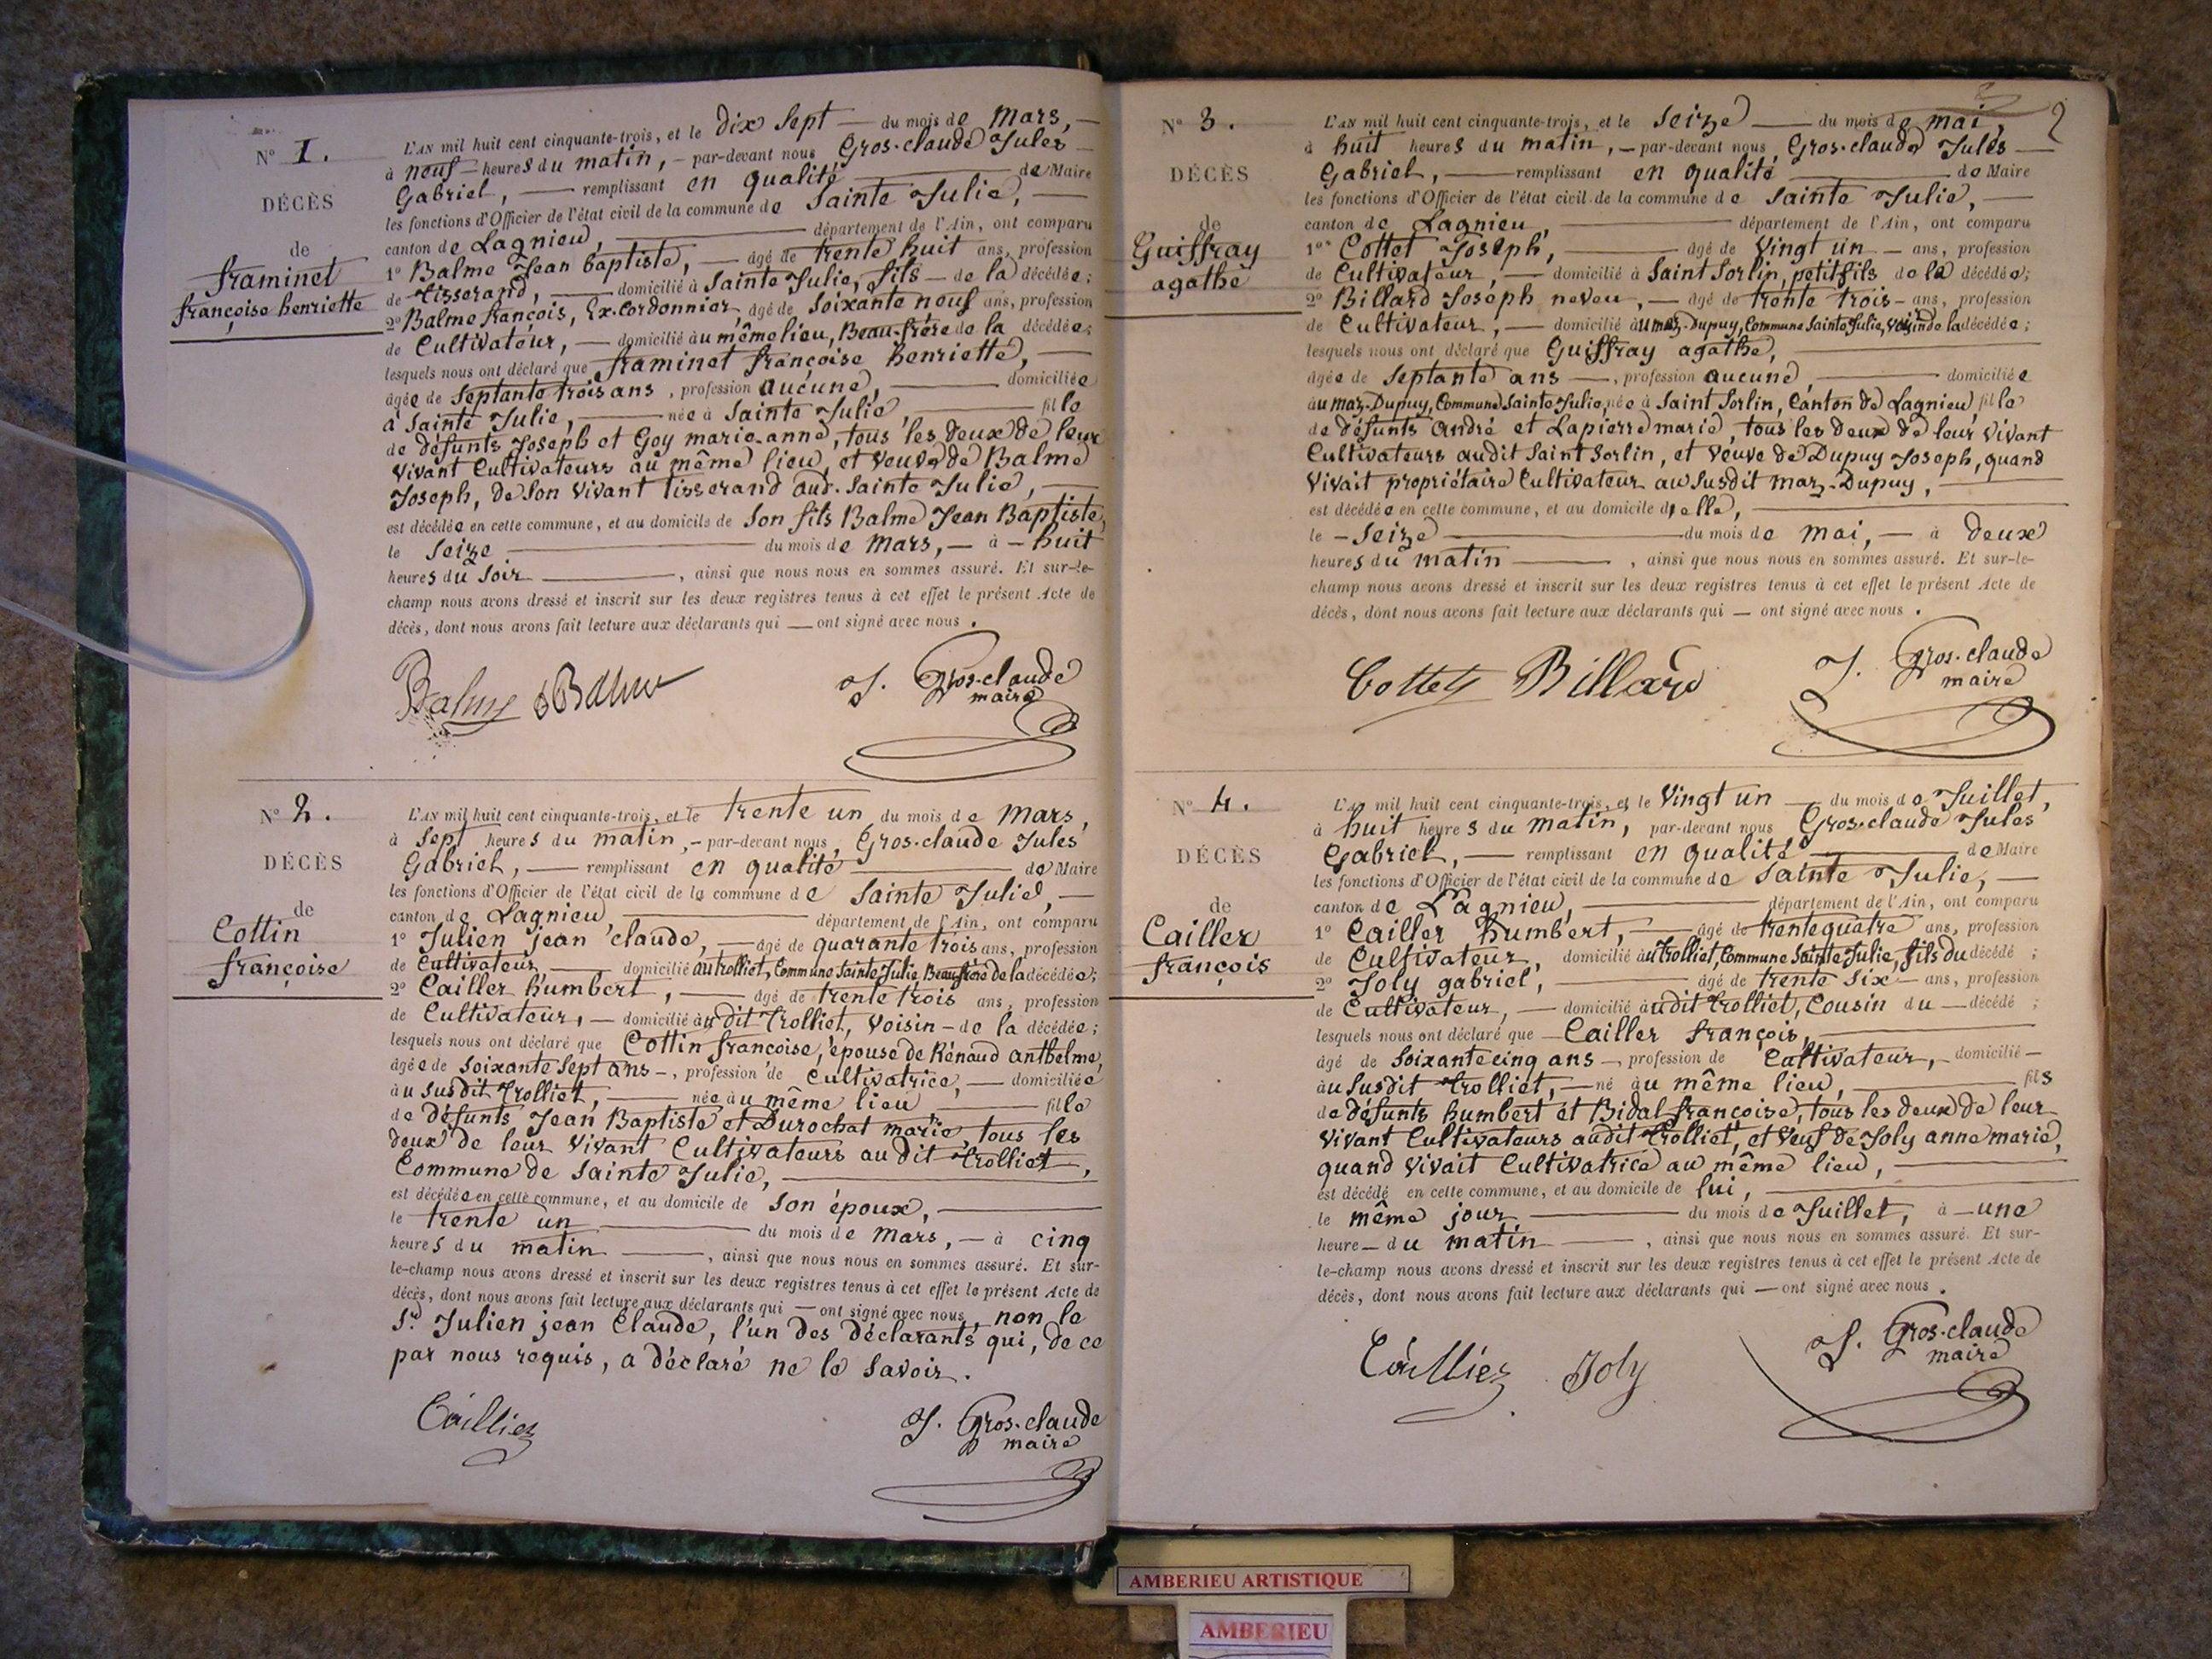 N° 1.
DÉCÈS
de
framinet
françoise henriette
L'AN mil huit cent cinquante-trois, et le dix sept — du mois de Mars, —
à neuf — heures du matin, — par-devant nous Gros-claude Jules
Gabriel, — remplissant en qualité — de Maire
les fonctions d'Officier de l'état civil de la commune de Sainte Julie, —
canton de Lagnieu, — département de l'Ain, ont comparu
1° Balme Jean baptiste, — âgé de trente huit ans, profession
de tisserand, — domicilié à Sainte Julie, fils — de la décédée;
2° Balme françois, Ex. Cordonnier, âgé de soixante neuf ans, profession
de Cultivateur, — domicilié au même lieu, Beau-frère de la décédée;
lesquels nous ont déclaré que framinet françoise henriette, —
âgée de septante trois ans, profession aucune, — domiciliée
à Sainte Julie, — née à Sainte Julie — fille
de défunts Joseph et Goy marie-anne, tous les deux de leur
vivant Cultivateurs au même lieu, et veuve de Balme
Joseph, de son vivant tisserand aud. Sainte Julie, —
est décédée en cette commune, et au domicile de son fils Balme Jean Baptiste,
le seize — du mois de Mars, — à — huit
heures du soir —, ainsi que nous nous en sommes assuré. Et sur-le-
champ nous avons dressé et inscrit sur les deux registres tenus à cet effet le présent Acte de
décès, dont nous avons fait lecture aux déclarants qui — ont signé avec nous.
Balme Balme J. Gros-claude
maire
N° 2.
DÉCÈS
de
Cottin
françoise
L'AN mil huit cent cinquante-trois, et le trente un du mois de Mars,
à sept heures du matin, — par-devant nous, Gros-claude Jules
Gabriel, — remplissant en qualité — de Maire
les fonctions d'Officier de l'état civil de la commune de Sainte Julie, —
canton de Lagnieu — département de l'Ain, ont comparu
1° Julien jean claude, — âgé de quarante trois ans, profession
de Cultivateur, — domicilié au trolliet, Commune Sainte Julie, Beau frère de la décédée;
2° Cailler humbert, — âgé de trente trois ans, profession
de Cultivateur, — domicilié au dit trolliet, voisin — de la décédée;
lesquels nous ont déclaré que Cottin françoise, épouse de Rénaud anthelme,
âgée de soixante sept ans —, profession de Cultivatrice, — domiciliée
au susdit trolliet, — née au même lieu — fille
de défunts Jean Baptiste et Durochat marie, tous les
deux de leur vivant Cultivateurs au dit trolliet,
Commune de Sainte Julie, —
est décédée en cette commune, et au domicile de son époux, —
le trente un — du mois de Mars, — à cinq
heures du matin —, ainsi que nous nous en sommes assuré. Et sur-
le-champ nous avons dressé et inscrit sur les deux registres tenus à cet effet le présent Acte de
décès, dont nous avons fait lecture aux déclarants qui — ont signé avec nous, non le
Sr. Julien jean Claude, l'un des déclarants qui, de ce
par nous requis, a déclaré ne le savoir.
Cailliez J. Gros-claude
maire
2
N° 3.
DÉCÈS
de
Guiffray
agathe
L'AN mil huit cent cinquante-trois, et le seize — du mois de mai,
à huit heures du matin, — par-devant nous, Gros-claude Jules —
Gabriel, — remplissant en qualité — de Maire
les fonctions d'Officier de l'état civil de la commune de Sainte Julie, —
canton de Lagnieu, — département de l'Ain, ont comparu
1° Cottet Joseph, — âgé de vingt un — ans, profession
de Cultivateur, — domicilié à Saint Sorlin, petit fils de la décédée;
2° Billard Joseph neveu, — âgé de trente trois — ans, profession
de Cultivateur, — domicilié au maz-Dupuy, Commune Sainte Julie, voisin de la décédée;
lesquels nous ont déclaré que Guiffray agathe, —
âgée de septante ans —, profession aucune, — domiciliée
au maz-Dupuy, Commune Sainte Julie, née à Saint Sorlin, Canton de Lagnieu, fille
de défunts André et Lapierre marie, tous les deux de leur vivant
Cultivateurs audit Saint Sorlin, et veuve de Dupuy Joseph, quand
vivait propriétaire Cultivateur au susdit maz-Dupuy, —
est décédée en cette commune, et au domicile d'elle, —
le — seize — du mois de mai, — à deux
heures du matin —, ainsi que nous nous en sommes assuré. Et sur-le-
champ nous avons dressé et inscrit sur les deux registres tenus à cet effet le présent Acte de
décès, dont nous avons fait lecture aux déclarants qui — ont signé avec nous.
Cottet Billard J. Gros-claude
maire
N° 4.
DÉCÈS
de
Cailler
françois
L'AN mil huit cent cinquante-trois, et le vingt un — du mois de Juillet,
à huit heures du matin, par-devant nous Gros-claude Jules
Gabriel, — remplissant en qualité — de Maire
les fonctions d'Officier de l'état civil de la commune de Sainte Julie, —
canton de Lagnieu, — département de l'Ain, ont comparu
1° Cailler humbert, — âgé de trente quatre ans, profession
de Cultivateur, domicilié au trolliet, Commune Sainte Julie, fils du décédé;
2° Joly gabriel, — âgé de trente six — ans, profession
de Cultivateur, — domicilié audit trolliet, Cousin du — décédé;
lesquels nous ont déclaré que — Cailler françois, —
âgé de soixante cinq ans —, profession de Cultivateur, — domicilié —
au susdit trolliet, — né au même lieu, — fils
de défunts humbert et Bidal françoise, tous les deux de leur
vivant Cultivateurs audit trolliet, et veuf de Joly anne marie,
quand vivait Cultivatrice au même lieu, —
est décédé en cette commune, et au domicile de lui, —
le même jour — du mois de Juillet, à — une
heure — du matin —, ainsi que nous nous en sommes assuré. Et sur-
le-champ nous avons dressé et inscrit sur les deux registres tenus à cet effet le présent Acte de
décès, dont nous avons fait lecture aux déclarants qui — ont signé avec nous.
Cailliez Joly J. Gros-claude
maire
AMBERIEU ARTISTIQUE
AMBERIEU